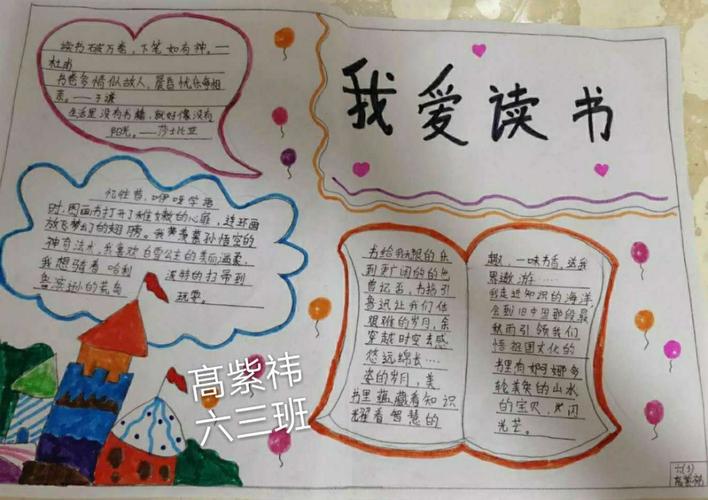 我爱读书
读书破万卷，下笔如有神。——
杜甫
书卷多情似故人，晨昏忧乐每相
亲。——于谦
生活里没有书籍，就好像没有
阳光。——莎士比亚
忆往昔，咿呀学语
时，图画书打开了稚嫩的心扉，连环画
放飞梦幻的翅膀。我羡慕孙悟空的
神奇法术，我喜欢白雪公主的美丽温柔，
我想骑着哈利
波特的扫帚到
鲁滨孙的荒岛
玩耍。
书给我无限的乐
到更广阔的
曾记否，书指引
鲁迅让我们体
艰难的岁月，余
穿越时空去感
悠远绵长……
姿的岁月，美
书里蕴藏着知识
耀着智慧的
趣，一味书香，送我
界遨游……
我走近知识的海洋，
会到旧中国那段最
秋雨引领我们
悟祖国文化的
书里有婀娜多
轮美奂的山水
的宝贝，书闪
光芒。
高紫祎
六三班
六(3)
高紫祎